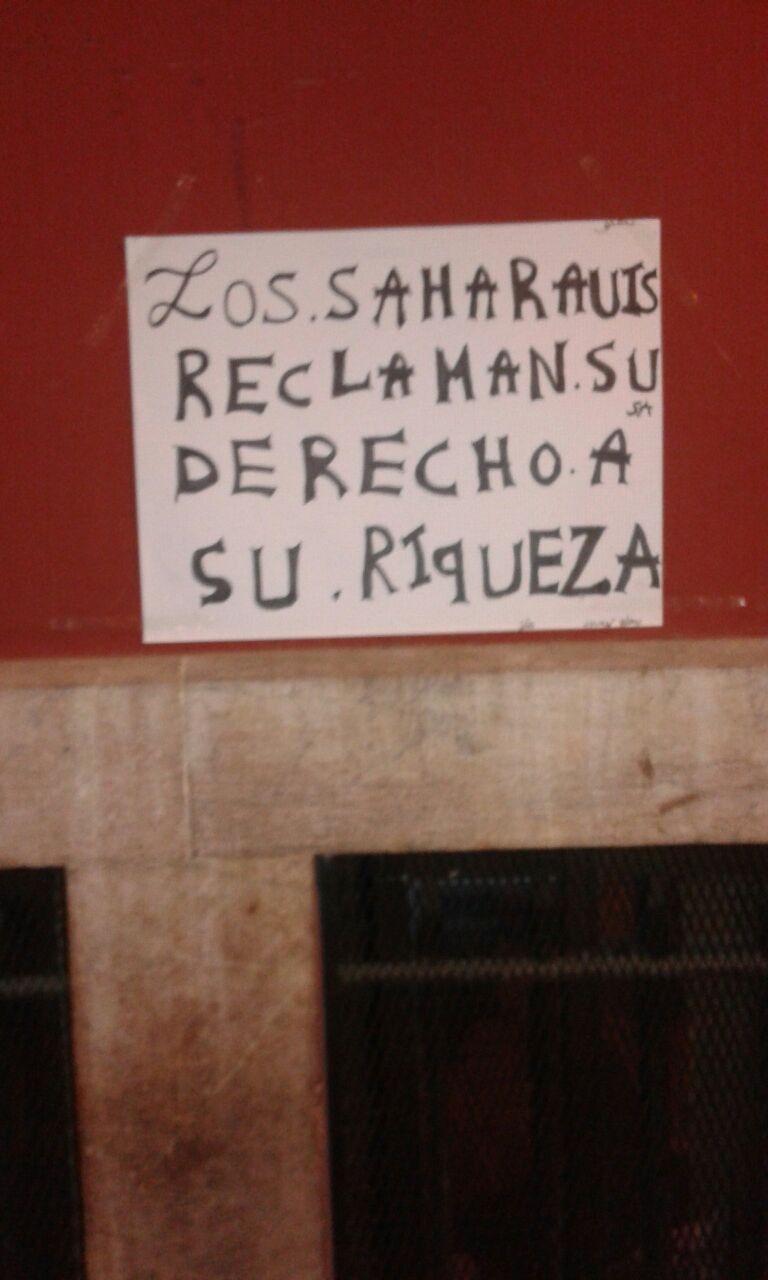 LOS.SAHARAUIS
RECLAMAN.SU
DERECHO.A
SU.RIQUEZA